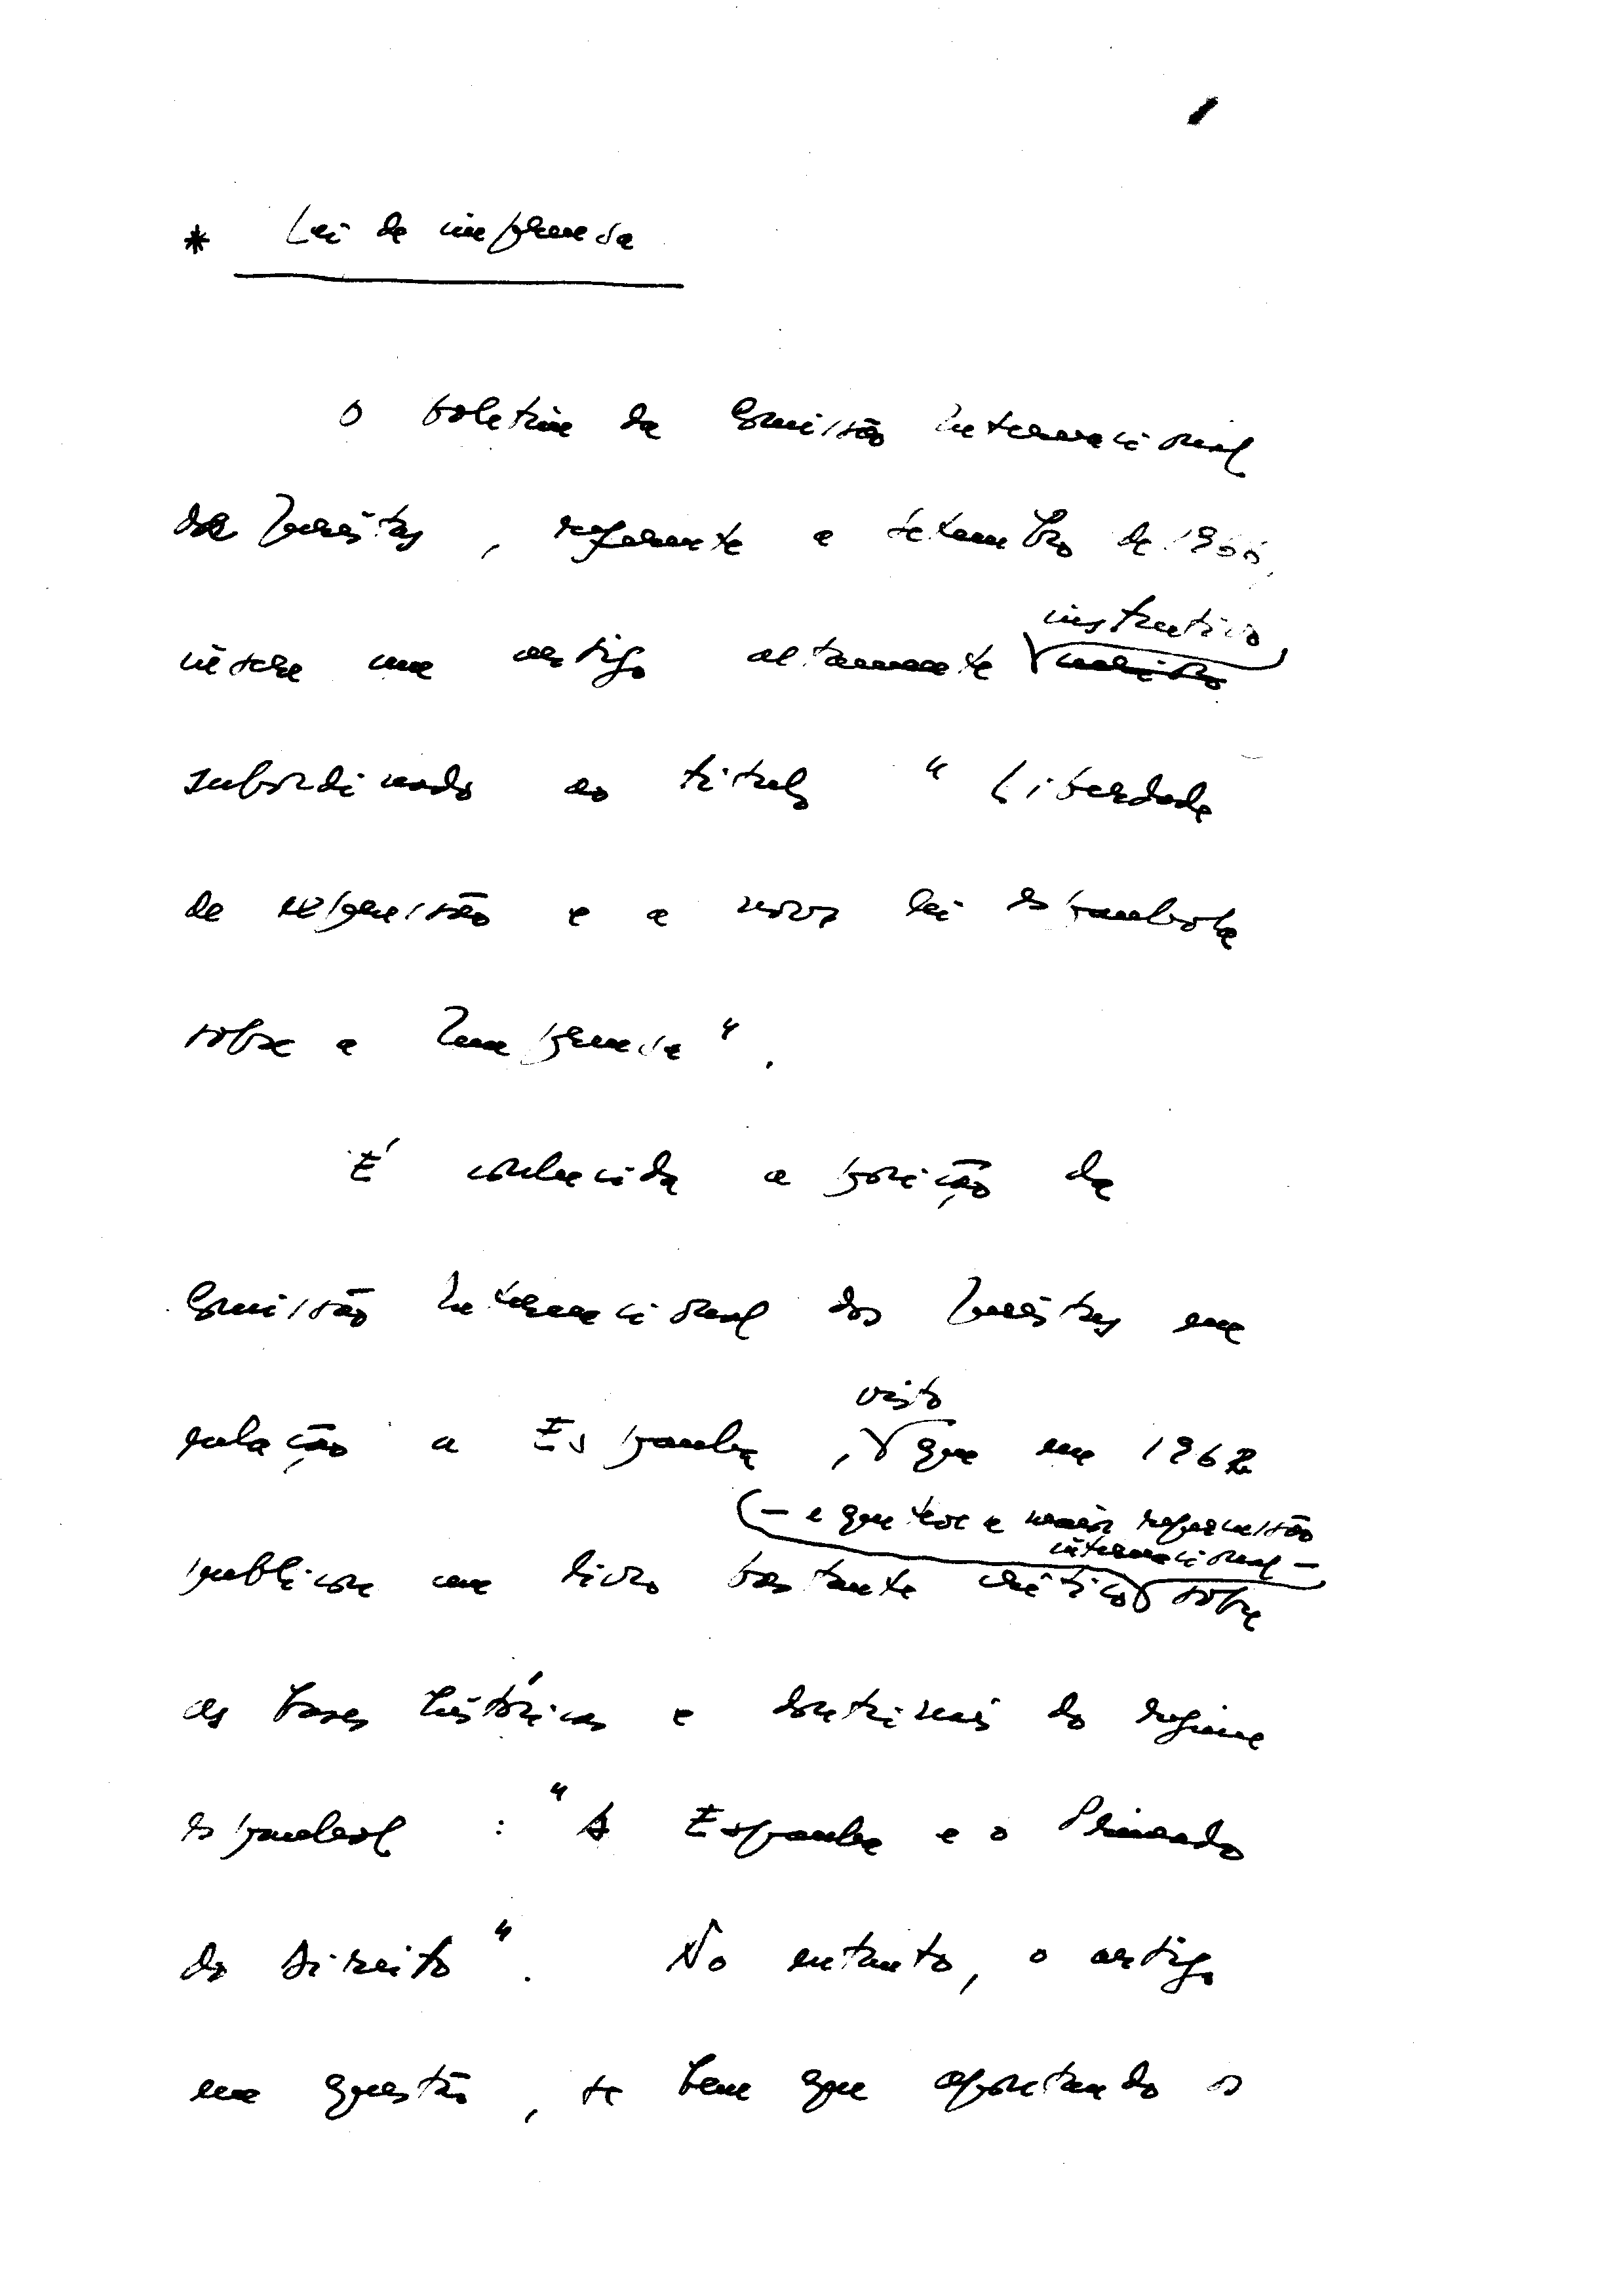 * Lei de imprensa
O boletim da Comissão Internacional
dos Juristas, referente a setembro de 1966,
insere um artigo altamente instrutivo
subordinado ao título "Liberdade
de expressão e a nova lei espanhola
sobre a Imprensa".
É conhecida a posição da
Comissão Internacional dos Juristas em
relação a Espanha, visto que em 1962
publicou um livro bastante crítico - e que teve a maior repercussão
internacional - sobre
as bases históricas e doutrinais do regime
espanhol : "A Espanha e o Primado
do Direito". No entanto, o artigo
em questão, se bem que apontando os